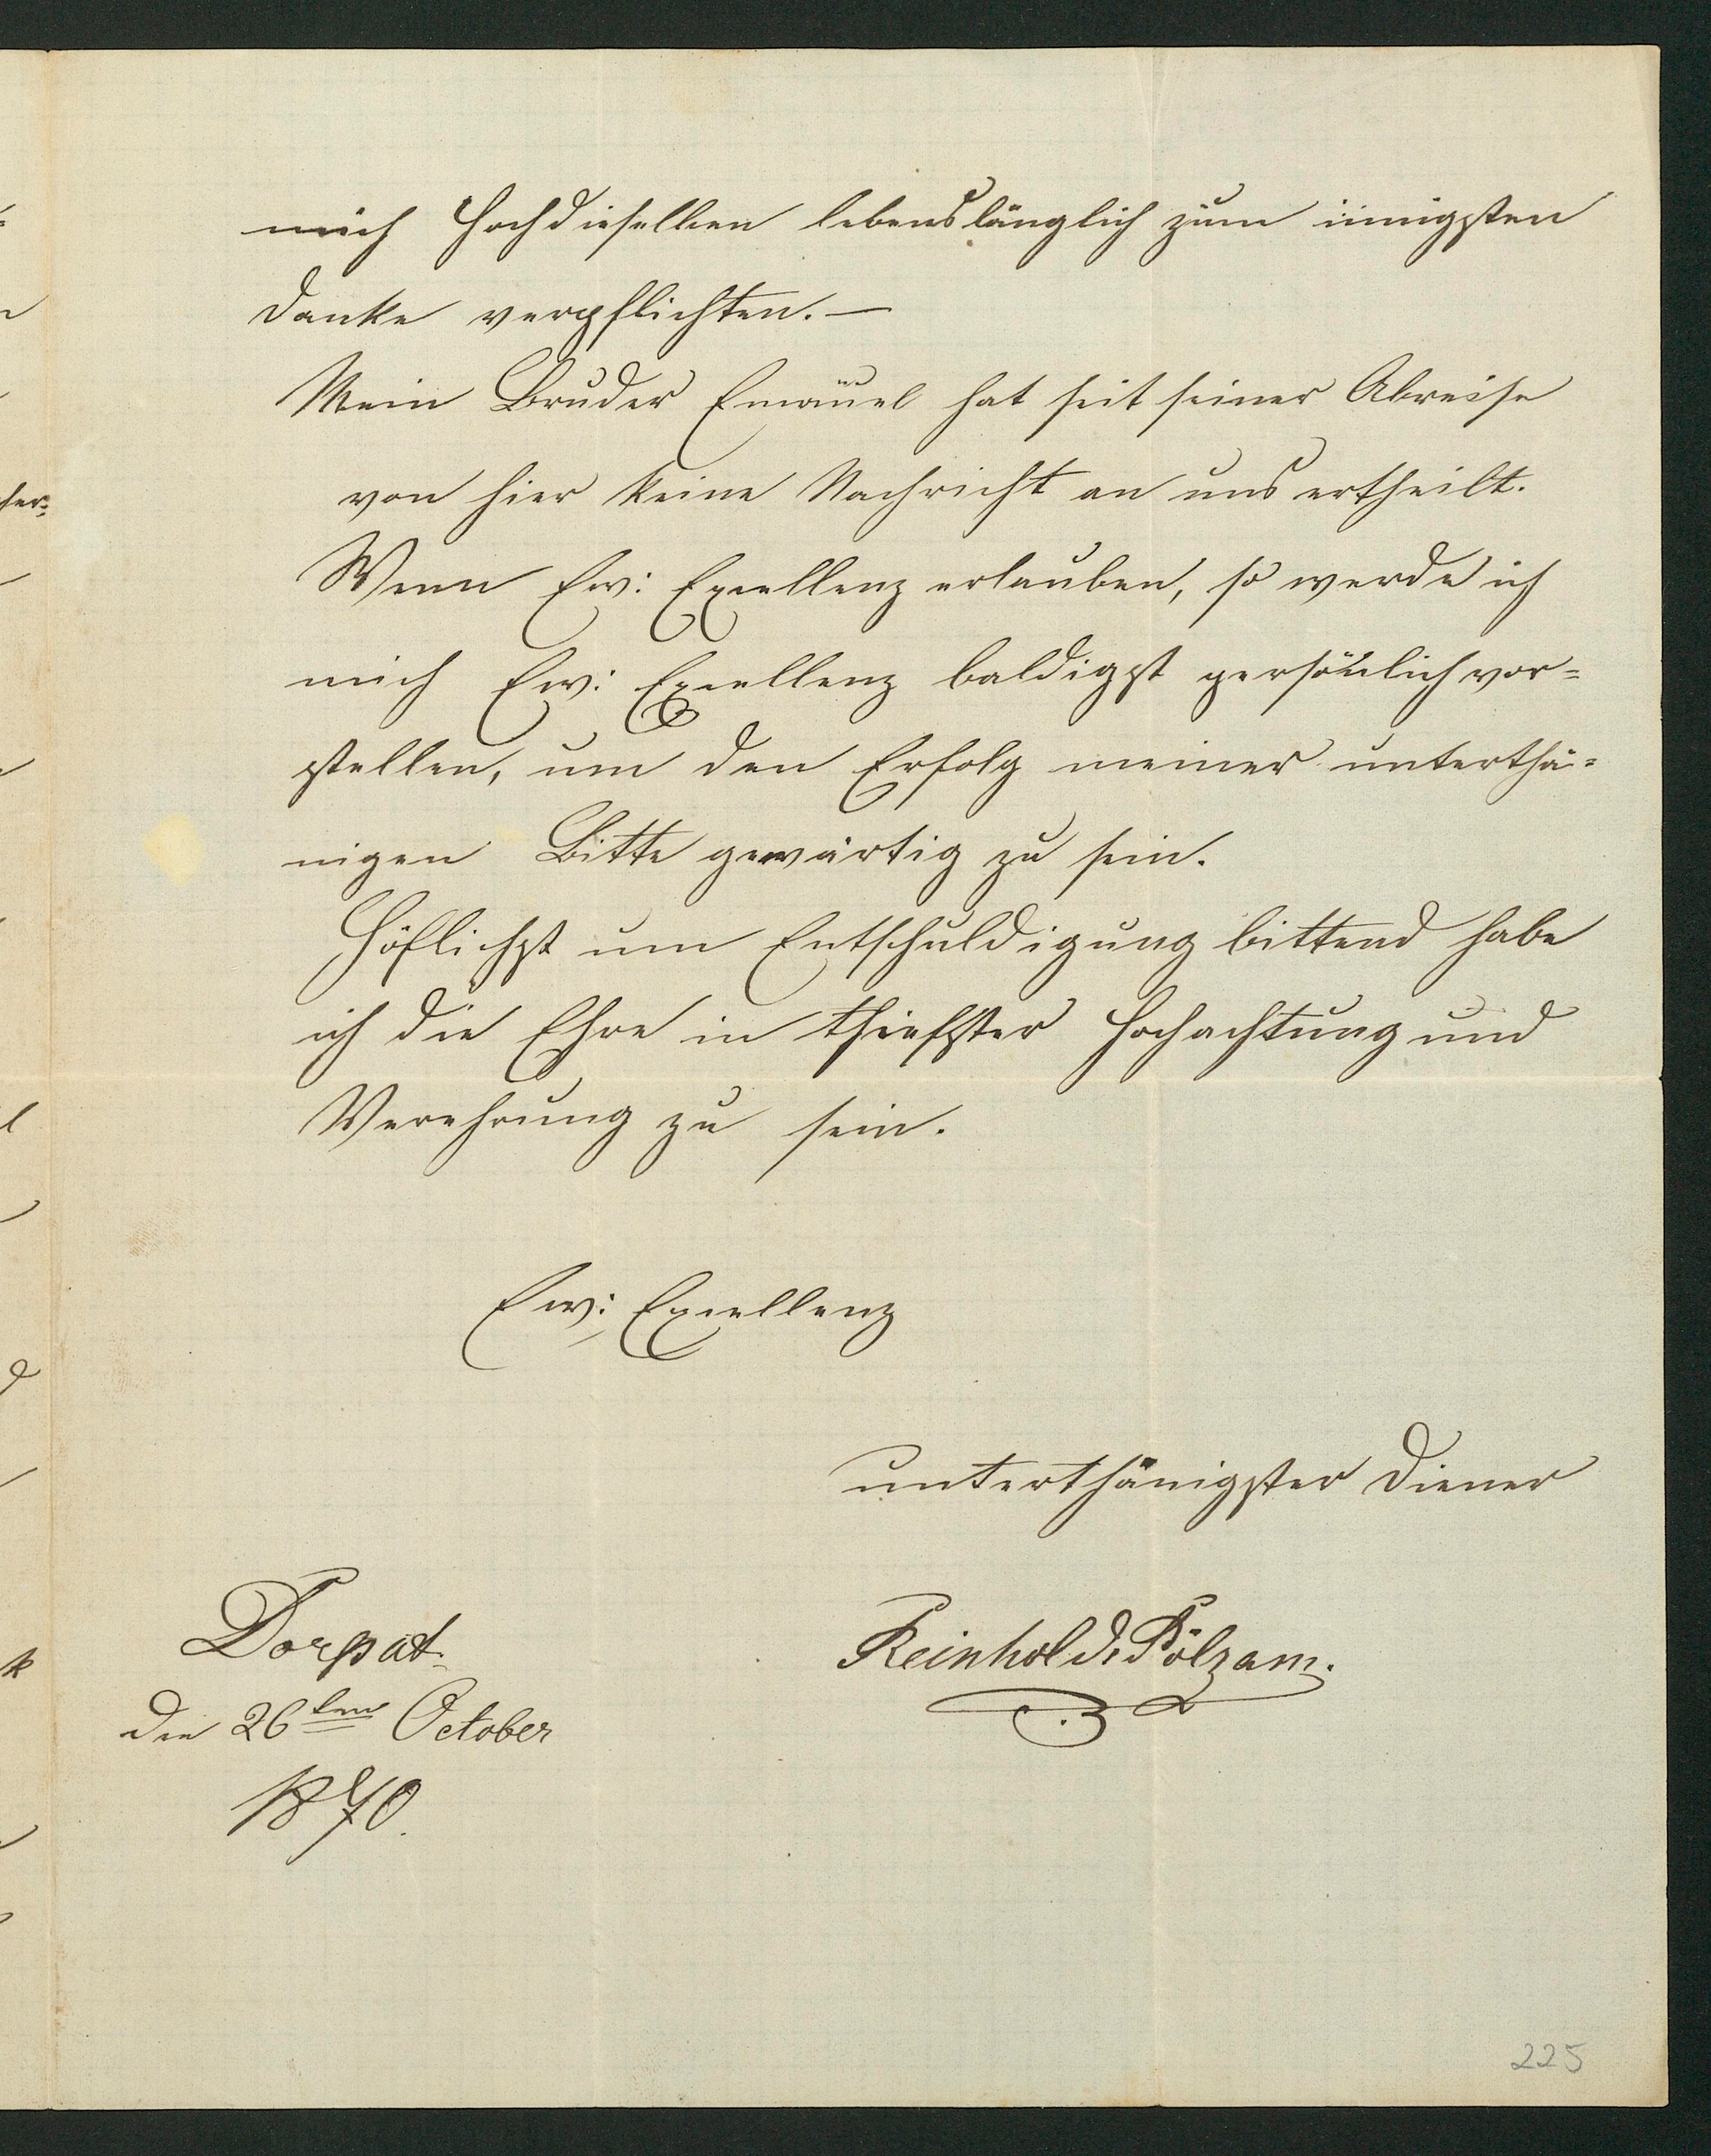 mich Hochdieselben lebenslänglich zum innigsten
Danke verpflichten. —
Mein Bruder Emanuel hat seit seiner Abreise
von hier keine Nachricht an uns ertheilt.
Wenn Ew: Excellenz erlauben, so werde ich
mich Ew: Excellenz baldigst persönlich vor=
stellen, um den Erfolg meiner unterthä=
nigen Bitte gewärtig zu sein.
Höflichst um Entschuldigung bittend habe
ich die Ehre in thiefster Hochachtung und
Verehrung zu sein.
Ew: Excellenz
unterthänigster Diener
Reinhold Pölzam.
Dorpat.
den 26ten October
1870.
225